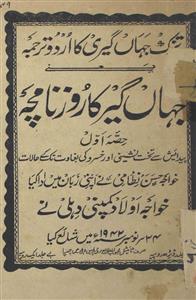 تزک جہاں گیری کا اردو ترجمہ
یعنی
جہاں گیر کا روزنامچہ
حصۂ اول
پیدائش سے تخت نشینی اور خسرو کی بغاوت تک کے حالات
خواجہ حسن نظامی نے اپنی زبان میں ادا کیا
خواجہ اولاد کمپنی دہلی نے
۲۴ نومبر ۱۹۲۲ء میں شائع کیا